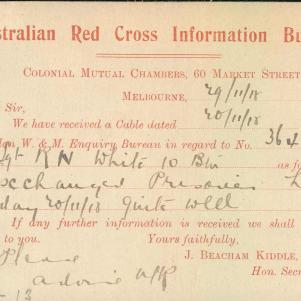 stralian Red Cross Information Bu
COLONIAL MUTUAL CHAMBERS, 60 MARKET STREET
MELBOURNE, 29/11/18
Sir, 20/11/18
We have received a Cable dated
W. & M. Enquiry Bureau in regard to No. 364
Sgt R N White 10 Bn as fo
xchanged Prisoner
day 20/11/18 quite well
If any further information is received we shall
to you. Yours faithfully,
J. BEACHAM KIDDLE,
Please Hon. Secr
advise
13